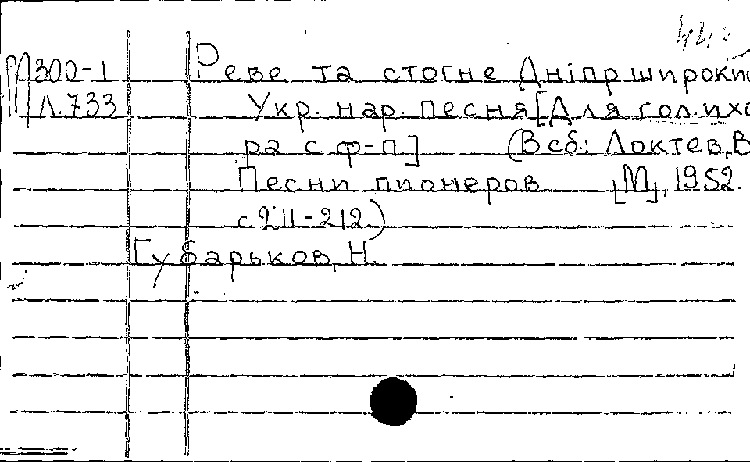 М 300-1 Реве та стогне Дніпр широки
Л.733 Укр. нар. песня [Для гол. и хо
ра с ф-п] (В сб: Локтев, В
Песни пионеров [М], 1952.
с 211-212.)
Губарьков, Н.